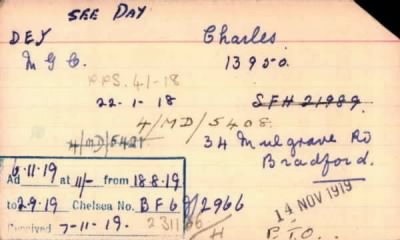 SEE DAY
DEY Charles.
M G C. 13950.
PPS. 41-18
22-1-18 SFH 21989.
4/MD/5408.
4/MD/5421
34 Mulgrave Rd
Bradford.
6.11.19
Ad at 11/- from 18.8.19
to 2.9.19 Chelsea No. BF6/2966
Received 7-11.19.
14 NOV 1919
P.T.O.